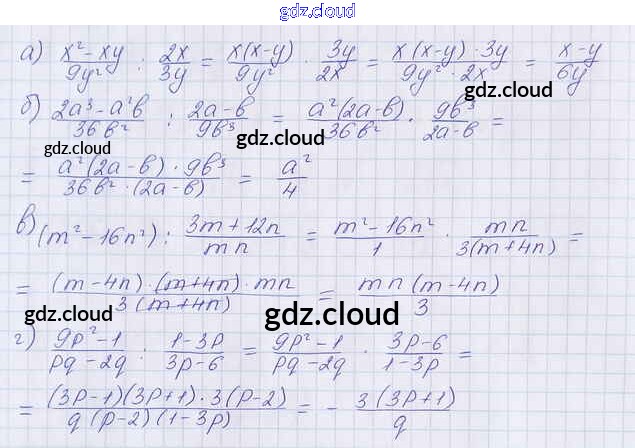 gdz.cloud
а) x² - xy / 9y² : 2x / 3y = x(x-y) / 9y² · 3y / 2x = x(x-y) · 3y / 9y² · 2x = x-y / 6y
б) 2a³ - a²b / 36b² : 2a-b / 9b³ = a²(2a-b) / 36b² · 9b³ / 2a-b =
gdz.cloud gdz.cloud gdz.cloud
= a²(2a-b) · 9b³ / 36b² · (2a-b) = a² / 4
gdz.cloud
в) (m² - 16n²) : 3m + 12n / mn = m² - 16n² / 1 · mn / 3(m+4n) =
= (m-4n) · (m+4n) · mn / 3(m+4n) = mn(m-4n) / 3
gdz.cloud gdz.cloud gdz.cloud
г) 9p² - 1 / pq - 2q : 1-3p / 3p-6 = 9p² - 1 / pq - 2q · 3p-6 / 1-3p =
= (3p-1)(3p+1) · 3(p-2) / q(p-2)(1-3p) = - 3(3p+1) / q